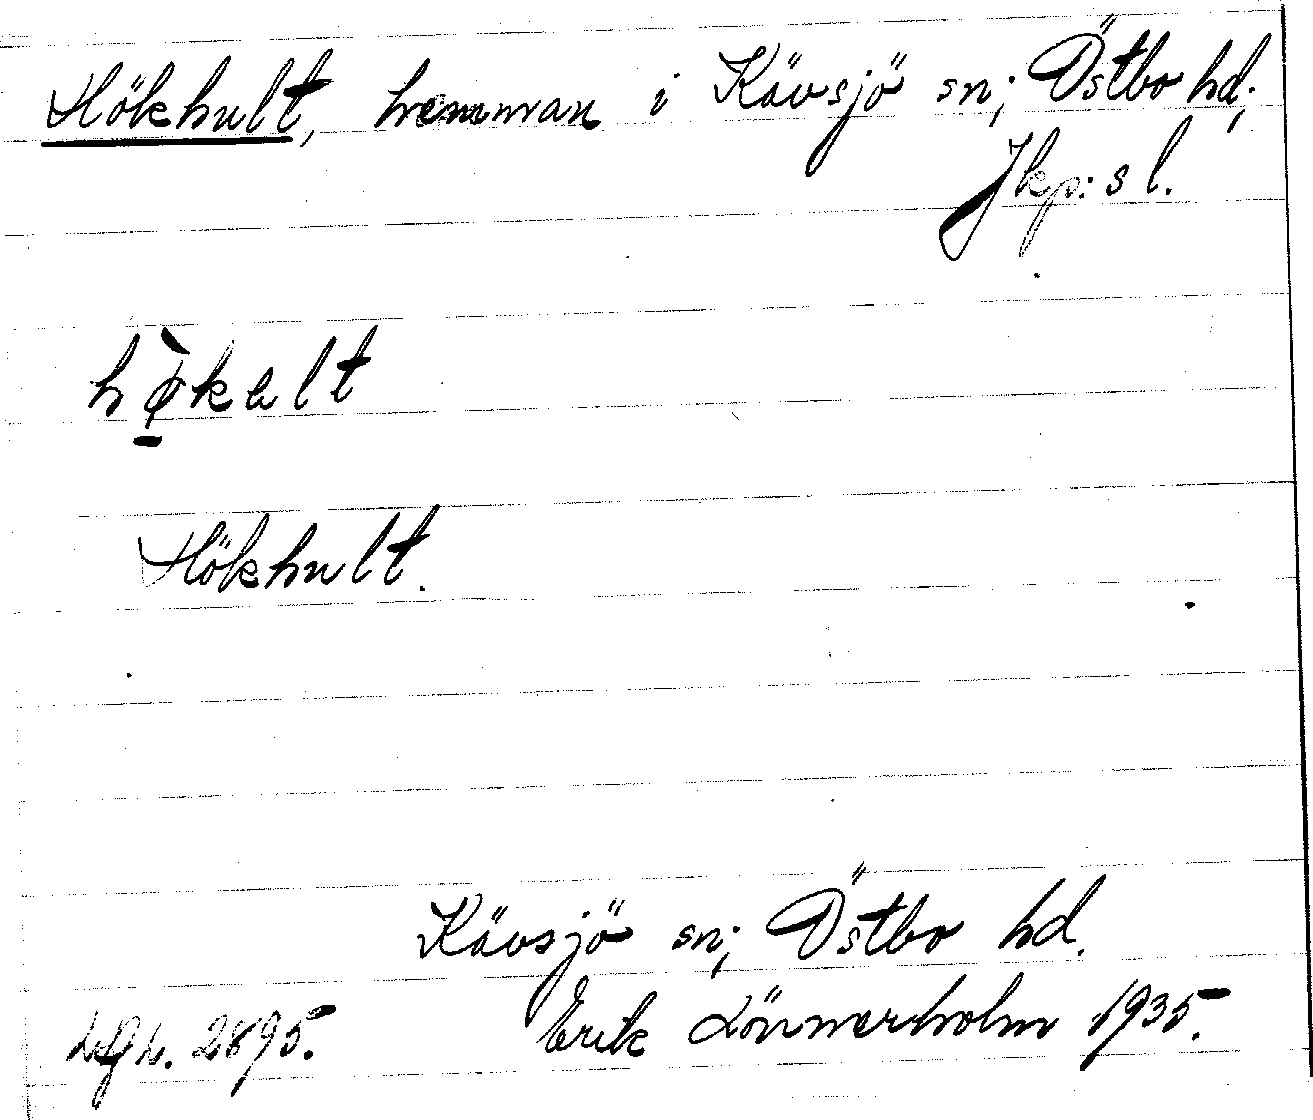 Hökhult, hemman i Kävsjö sn; Östbo hd;
Jkp:s l.
hø̀kalt
Hökhult.
Kävsjö sn; Östbo hd.
Erik Lönnerholm 1935.
2895.